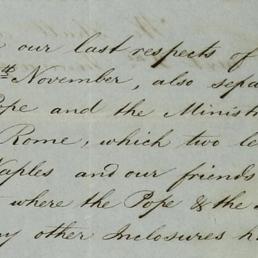 our last respects of
th November, also sepa
ope and the Ministr
Rome, which two le
Naples and our friends
where the Pope & the
ny other Inclosures h